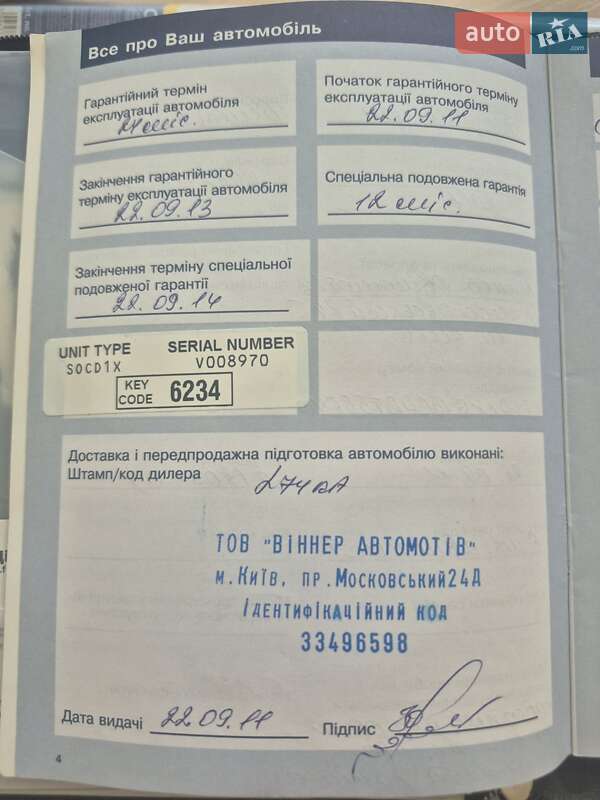 auto RIA .com
Все про Ваш автомобіль
Гарантійний термін
експлуатації автомобіля
24 міс.
Початок гарантійного терміну
експлуатації автомобіля
22.09.11
Закінчення гарантійного
терміну експлуатації автомобіля
22.09.13
Спеціальна подовжена гарантія
12 міс.
Закінчення терміну спеціальної
подовженої гарантії
22.09.14
UNIT TYPE SERIAL NUMBER
SOCD1X V008970
KEY
CODE 6234
Доставка і передпродажна підготовка автомобілю виконані:
Штамп/код дилера
ТОВ "ВІННЕР АВТОМОТІВ"
м.Київ, пр.Московський24Д
Ідентифікаційний код
33496598
Дата видачі 22.09.11
Підпис
4